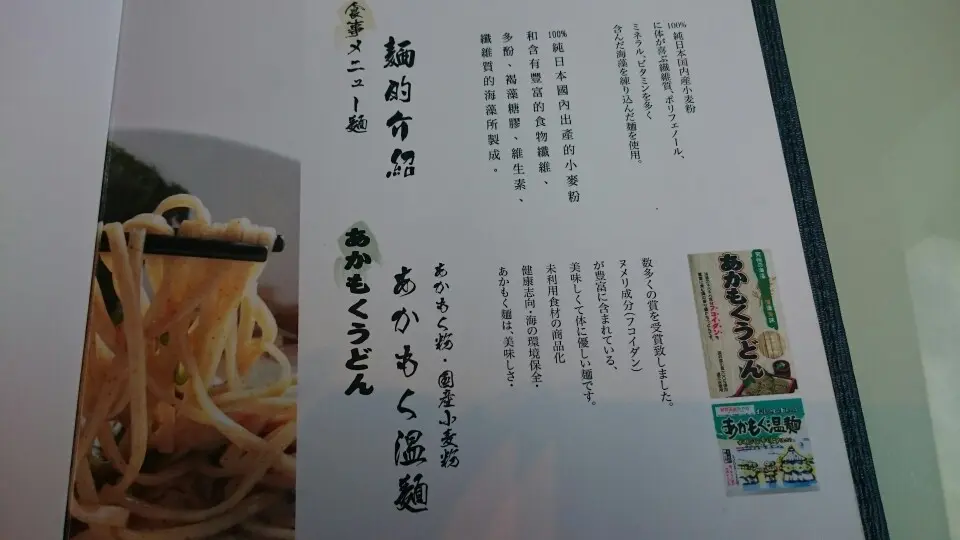 100% 純日本国内産小麦粉
に体が喜ぶ繊維質、ポリフェノール、
ミネラル、ビタミンを多く
含んだ海藻を練り込んだ麺を使用。
100% 純日本國內出產的小麥粉
和含有豐富的食物纖維、
多酚、褐藻糖膠、維生素、
纖維質的海藻所製成。
麺的介紹
食事メニュー麺
あかもくうどん
あかもく温麺
数多くの賞を受賞致しました。
ヌメリ成分(フコイダン)
が豊富に含まれている、
美味しくて体に優しい麺です。
未利用食材の商品化
健康志向・海の環境保全・
あかもく麺は、美味しさ・
あかもく粉・国産小麦粉
あかもく温麺
あかもくうどん